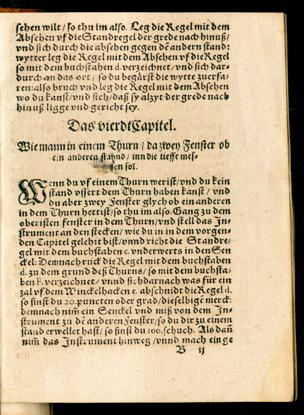 sehen wilt / so thu im also. Leg die Regel mit dem
Absehen vf die Standregel der grede nach hinuß/
vnd sich durch die absehen gegen dē andern stand:
wytter leg die Regel mit dem Absehen vf die Regel
so mit dem buchstaben d. verzeichnet / vnd sich dar-
durch an das ort / so du begärst die wytte zuerfa-
ren: also bruch vnd leg die Regel mit dem Absehen
wo du kanst / vnd sich / daß sy alzyt der grede nach
hinuß ligge vnd gericht sey.
Das vierdt Capitel.
Wie mann in einem Thurn / da zwey Fenster ob
ein anderen stahnd / inn die tieffe mes-
sen sol.
Wenn du vf einem Thurn werist / vnd du kein
stand vssert dem Thurn haben kanst / vnd
du aber zwey Fenster glych ob ein anderen
in dem Thurn hettist / so thu im also. Gang zu dem
oberisten fenster in dem Thurn / vnd stell das In-
strument an den stecken / wie du in dem vorgen-
den Capitel gelehrt bist / vnnd richt die Standre-
gel mit dem buchstaben c. vnderwerts in den Sen
ckel: Demnach ruck die Regel mit dem buchstaben
d. zu dem grund deß Thurns / so mit dem buchsta-
ben k. verzeichnet / vnnd sich darnach was für ein
zal vf dem Winckelhacken e. abschnidt die Regel d.
so finst du 20. puncten oder grad / dieselbige merck:
demnach nim̄ ein Senckel vnd miß von dem In-
strument zu dē anderen fenster / so du dir zu einem
stand erwellet hast / so finst du 100. schuch. Als dañ
nim̄ das Instrument hinweg / vnnd mach ein ge
B ij